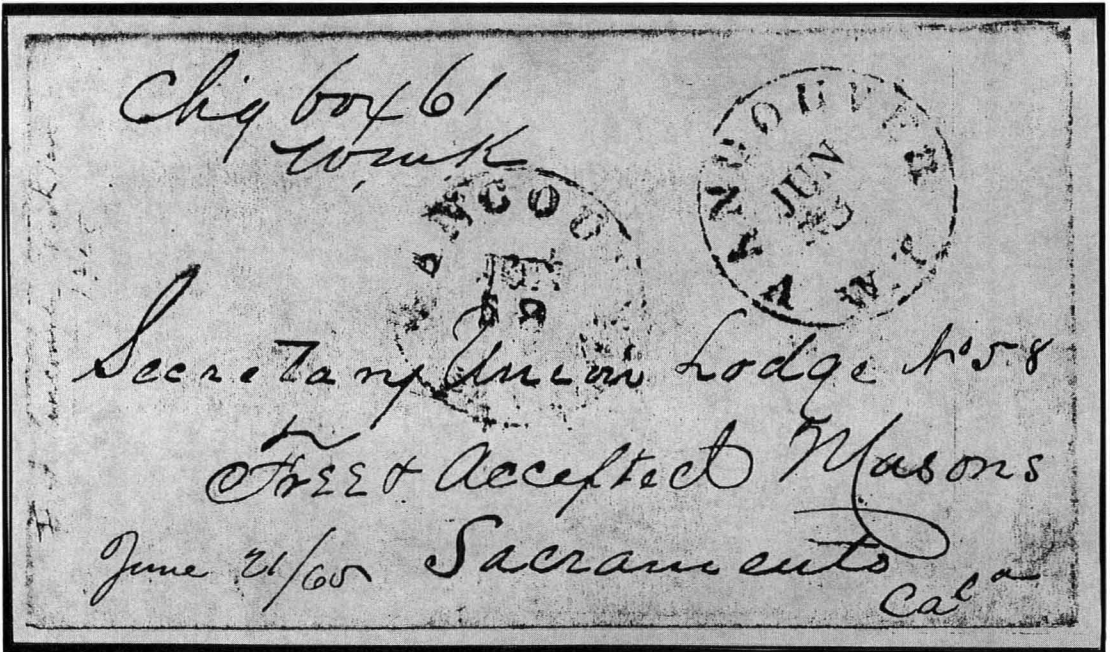 Chg box 61
VANCOUVER W.T.
JUN
ANCOU
Secretary Union Lodge No 58
Free & Accepted Masons
June 21/60 Sacramento
Cala